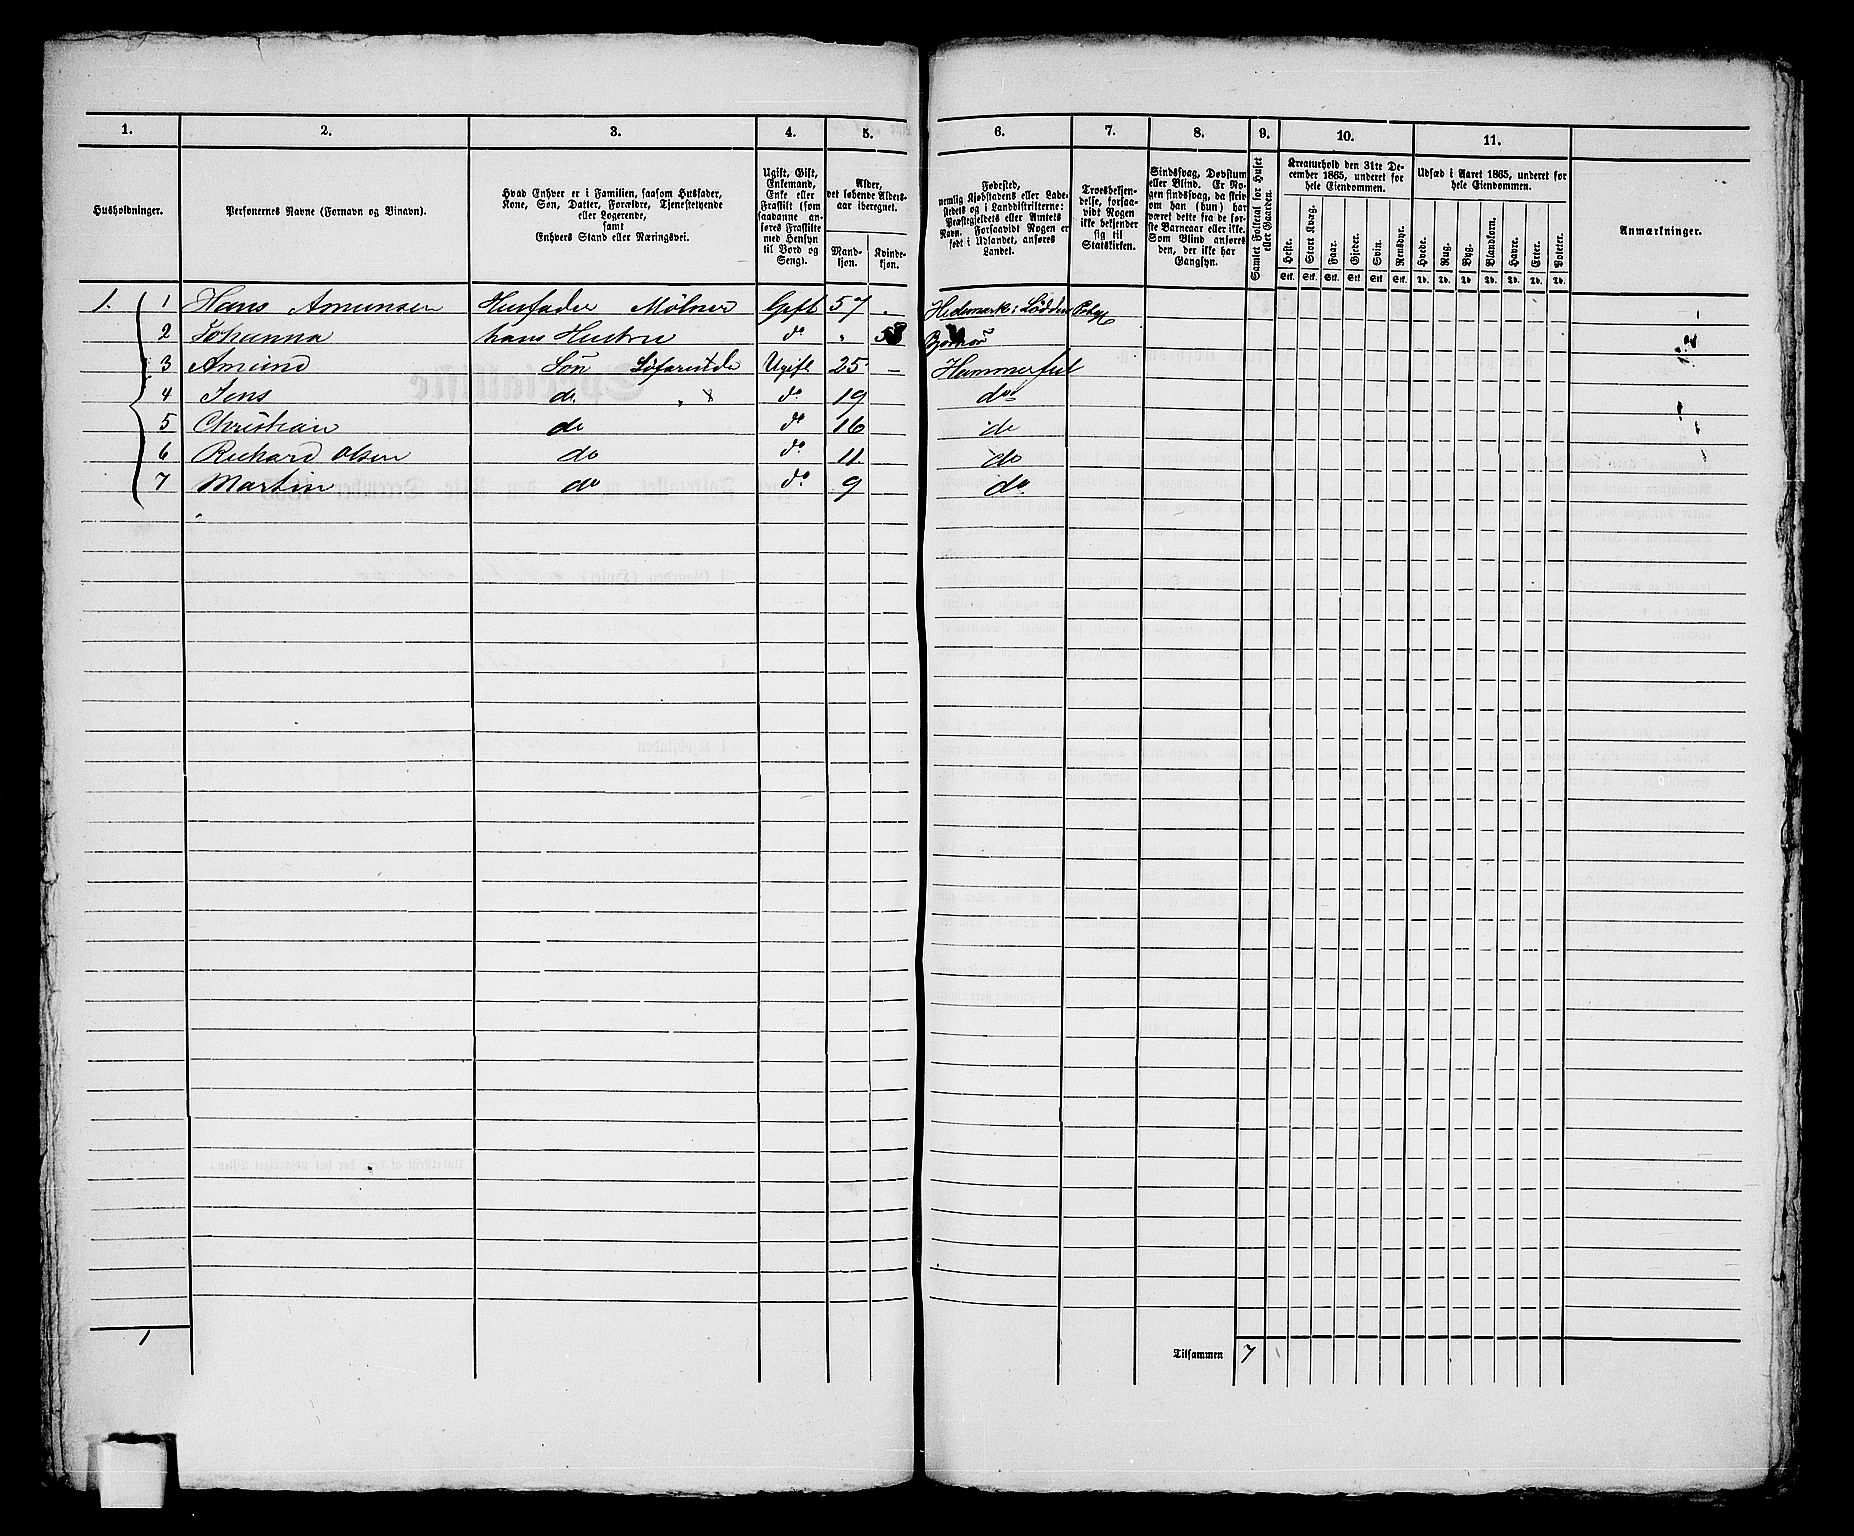 1. 2. 3. 4. 5. 6. 7. 8. 9. 10. 11.
Husholdninger.
Personernes Navne (Fornavn og Vinavn).
Hvad Enhver er i Familien, saasom Husfader,
Kone, Søn, Datter, Forældre, Tjenestetyende
eller Logerende,
samt
Enhvers Stand eller Næringsvei.
Ugift, Gift,
Enkemand,
Enke eller
Fraskilt (som
saadanne an-
føres Fraskilte
med Hensyn
til Bord og
Seng).
Alder,
det løbende Alders-
aar iberegnet.
Mand-
kjøn.
Kvinde-
kjøn.
Fødested,
nemlig Kjøbstadens eller Lade-
stedets og i Landdistrikterne:
Præstegjeldets eller Amtets
Navn. Forsaavidt Nogen er
født i Udlandet, anføres
Landet.
Troesbekjen-
delse, forsaa-
vidt Nogen
ikke bekjender
sig til
Statskirken.
Sindssvag, Døvstum
eller Blind. Er No-
gen sindssvag, da skriv
om han (hun) har
været dette fra de før-
ste Barneaar eller ikke.
Som Blind anføres
den, der ikke har
Gangsyn.
Samlet Folketal for Huset
eller Gaarden.
Kreaturhold den 31te De-
cember 1865, underet for
hele Eiendommen.
Heste. Stort Kvæg. Faar. Gjeder. Svin. Rensdyr.
Stk. Stk. Stk. Stk. Stk. Stk.
Udsæd i Aaret 1865, underet for
hele Eiendommen.
Hvede. Rug. Byg. Blandkorn. Havre. Erter. Poteter.
Td. Td. Td. Td. Td. Td. Td.
Anmærkninger.
1. 1 Hans Amunsen Husfader Mølner Gift 57 - Hedemark: Lødden
2 Johanna hans Hustru do " 58
3 Amund Søn Søfarende Ugift 25 - Hammerfest
4 Jens do " do 19 do
5 Christian do do 16 do
6 Richard Olsen do do 11 do
7 Martin do do 9 do
1
Tilsammen 7